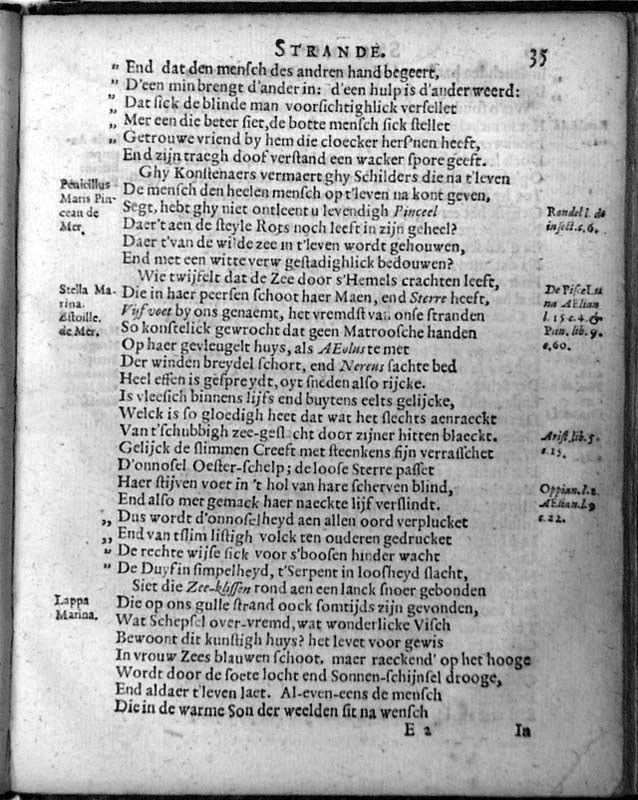 STRANDE. 35
" End dat den mensch des andren hand begeert,
" D'een min brengt d'ander in: d'een hulp is d'ander weerd:
„ Dat sick de blinde man voorsichtighlick versellet
„ Mer een die beter siet, de botte mensch sick stellet
„ Getrouwe vriend by hem die cloecker hersnen heeft,
End zijn traegh doof verstand een wacker spore geeft.
Ghy Konstenaers vermaert ghy Schilders die na t'leven
Penicillus Maris Pin-
ceau de
Mer.
De mensch den heelen mensch op t'leven na kont geven,
Segt, hebt ghy niet ontleent u levendigh Pinceel
Rondel l. de
insect. c. 6.
Daer't aen de steyle Rots noch leeft in zijn geheel?
Daer t'van de wilde zee in t'leven wordt gehouwen,
End met een witte verw gestadighlick bedouwen?
Wie twijfelt dat de Zee door s'Hemels crachten leeft,
Stella Ma-
rina.
Estoille.
de Mer.
Die in haer peersen schoot haer Maen, end Sterre heeft,
Vijfvoet by ons genaemt, het vremdst van onse stranden
So konstelick gewrocht dat geen Matroosche handen
De Pisce
na AElian
l. 15 c. 4. &
Plin. lib. 9.
c. 60.
Op haer gevleugelt huys, als AEolus te met
Der winden breydel schort, end Nereus sachte bed
Heel effen is gespreydt, oyt sneden also rijcke.
Is vleesich binnens lijfs end buytens eelts gelijcke,
Welck is so gloedigh heet dat wat het slechts aenraeckt
Van t'schubbigh zee-geslacht door zijner hitten blaeckt.
Arist. lib. 5.
c. 15.
Gelijck de slimmen Creeft met steenkens sijn verrasschet
D'onnosel Oester-schelp; de loose Sterre passet
Haer stijven voet in 't hol van hare scherven blind,
Oppian. l. 2.
AElian. l. 9
c. 22.
End also met gemack haer naeckte lijf verslindt.
„ Dus wordt d'onnoselheyd aen allen oord verplucket
„ End van tslim listigh volck ten ouderen gedrucket
" De rechte wijse sick voor s'boosen hinder wacht
" De Duyf in simpelheyd, t'Serpent in loosheyd slacht,
Siet die Zee-klissen rond aen een lanck snoer gebonden
Lappa
Marina.
Die op ons gulle strand oock somtijds zijn gevonden,
Wat Schepsel over-vremd, wat wonderlicke Visch
Bewoont dit kunstigh huys? het levet voor gewis
In vrouw Zees blauwen schoot, maer raeckend' op het hooge
Wordt door de soete locht end Sonnen-schijnsel drooge,
End aldaer t'leven laet. Al-even-eens de mensch
Die in de warme Son der weelden sit na wensch
E 2 In